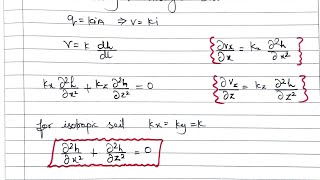 q = kiA ⇒ v = ki
v = k dh/dl
∂vx/∂x = kx ∂²h/∂x²
kx ∂²h/∂x² + kz ∂²h/∂z² = 0
∂vz/∂z = kz ∂²h/∂z²
for isotropic soil kx = ky = k
∂²h/∂x² + ∂²h/∂z² = 0